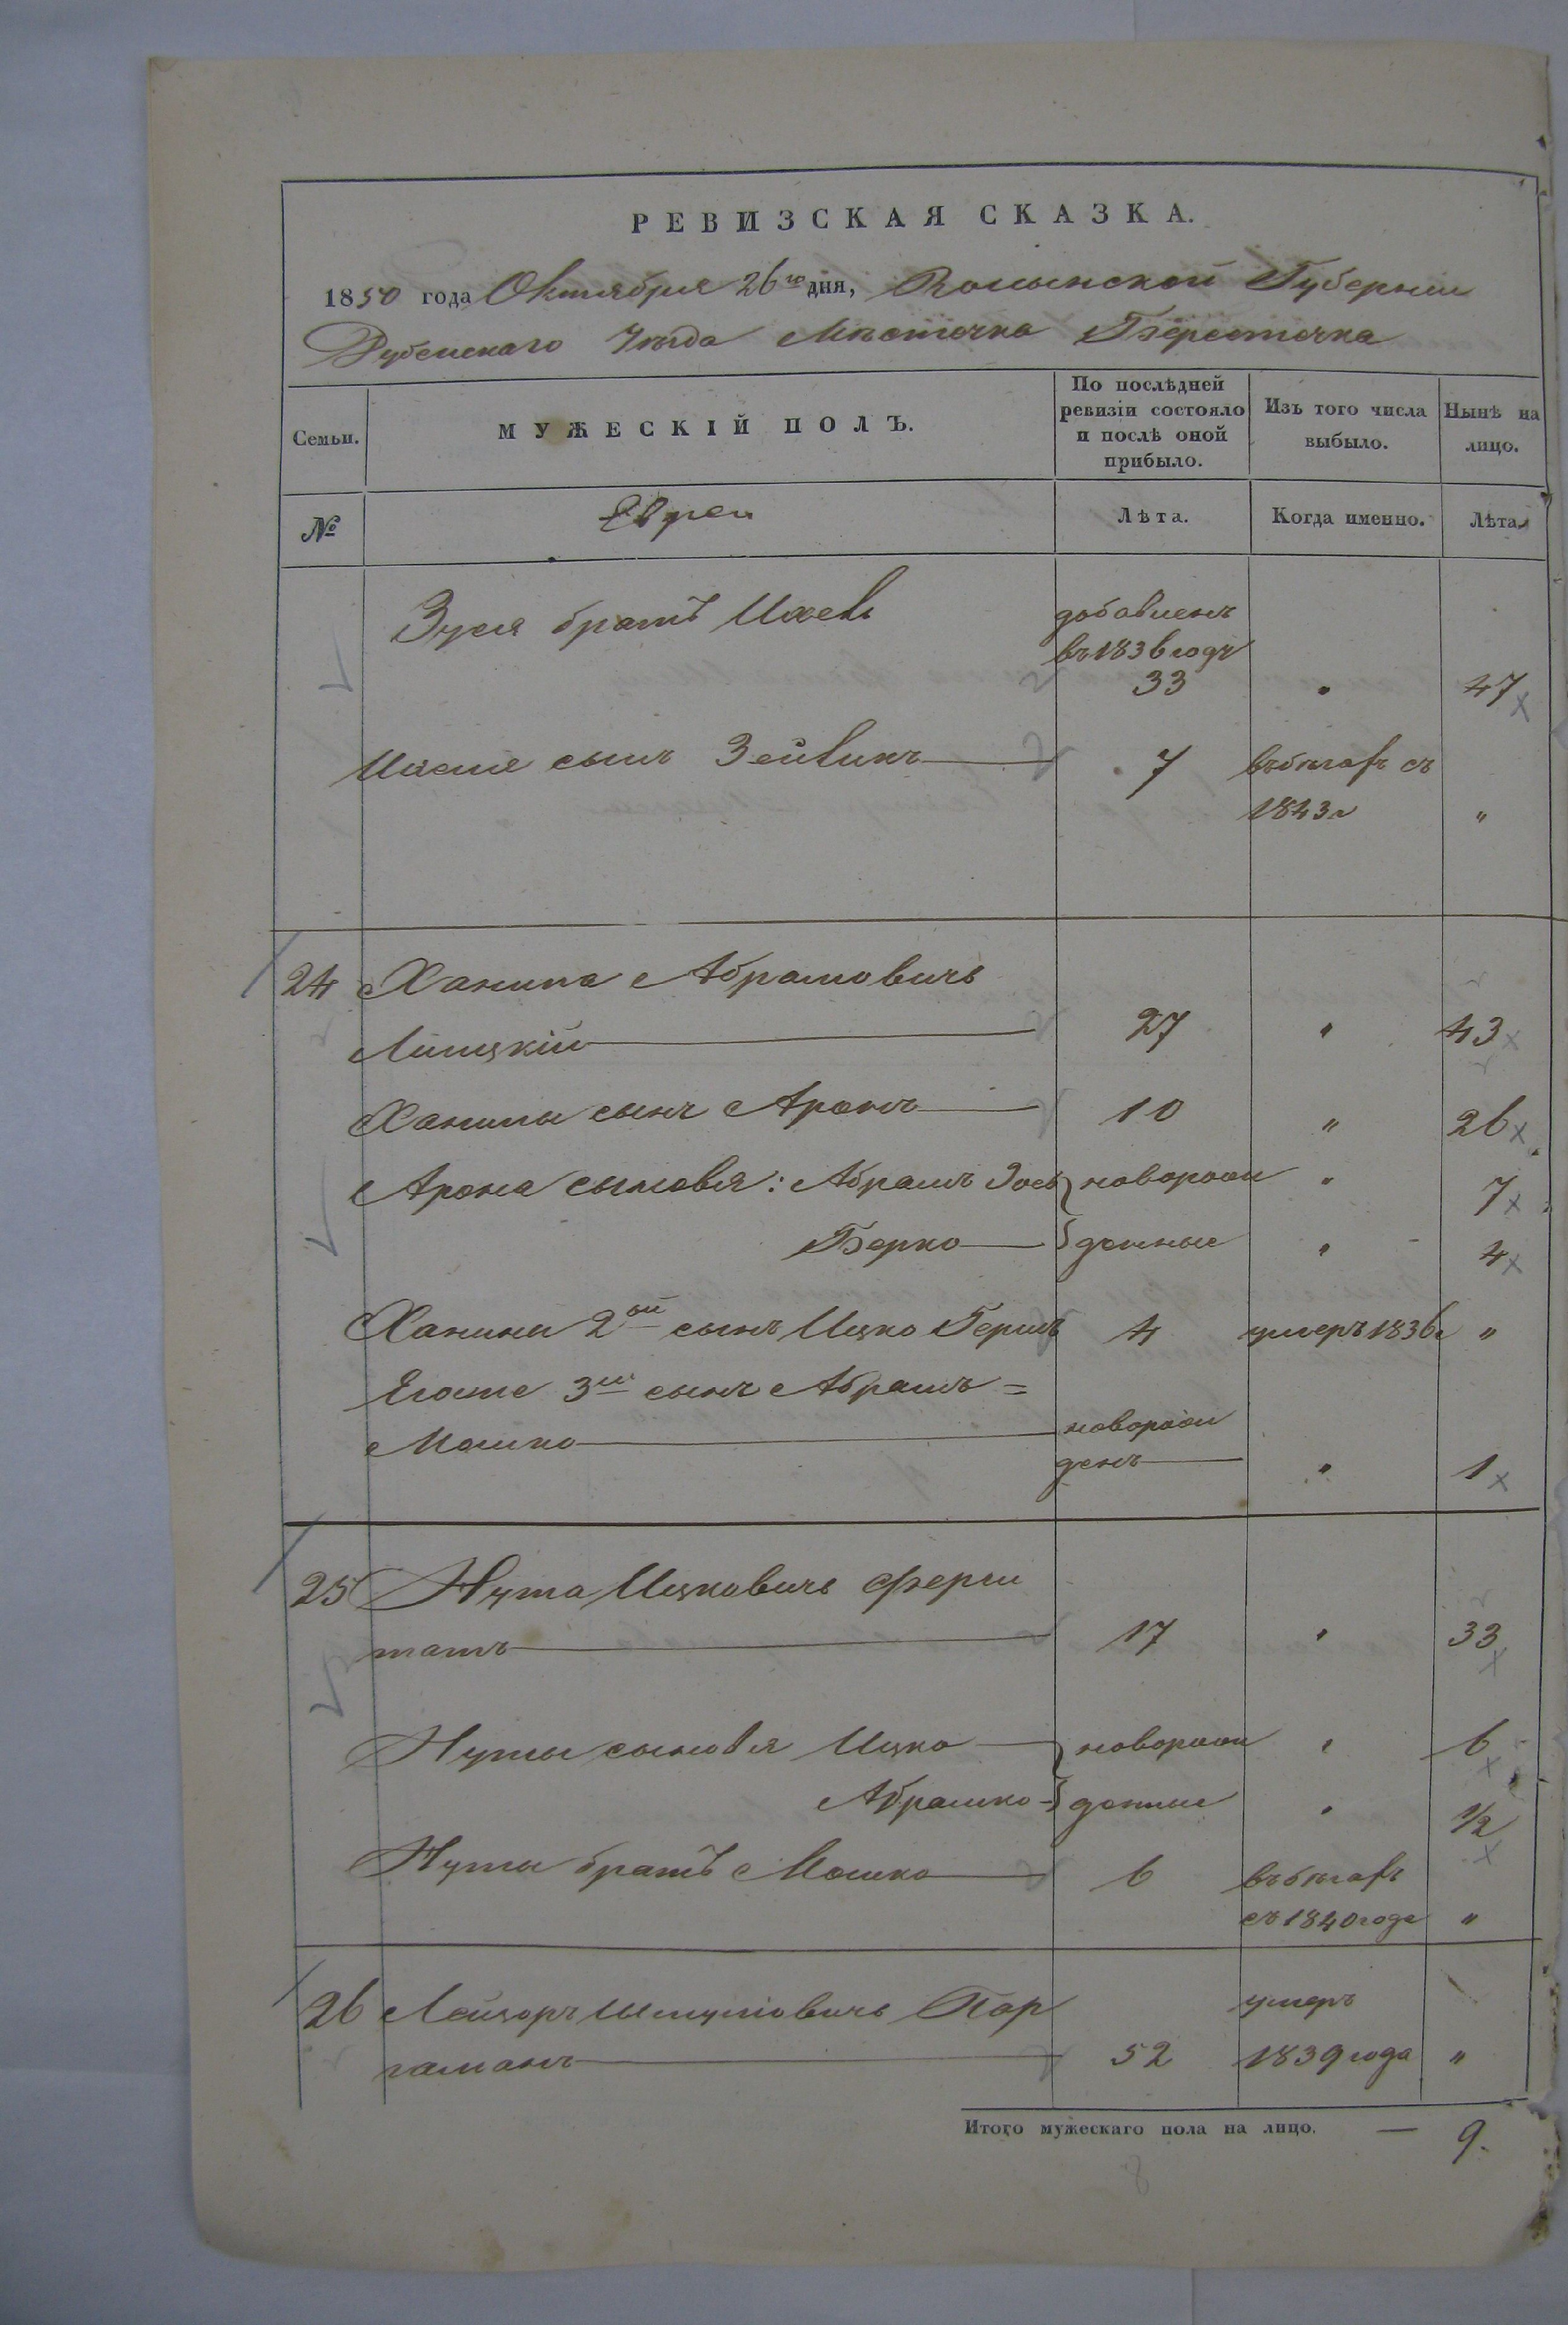 РЕВИЗСКАЯ СКАЗКА.
1850 года Октября 26го дня, Волынской Губернии
Дубенскаго Уѣзда Мѣстечка Берестечка
Семьи.
МУЖЕСКІЙ ПОЛЪ.
По послѣдней
ревизіи состояло
и послѣ оной
прибыло.
Изъ того числа
выбыло.
Нынѣ на
лицо.
№
Евреи
Лѣта.
Когда именно.
Лѣта.
Зуся братъ
добавленъ
въ 1836 годѣ
33 " 47
сынъ Зейликъ 7 въ бѣгахъ съ
1843 г "
24 Ханина Абрамовичъ
27 " 43
Ханины сынъ Аронъ 10 " 26
Арона сыновья: Абрамъ Іось новорож " 7
Берко денные " 4
Ханины 2ой сынъ Ицко Гершъ 4 умеръ 1836 г "
Егоже 3й сынъ Абрамъ=
Мошко новорож
денъ " 1
25 Нута Ицковичъ
17 " 33
Нуты сыновья Ицко новорож " 6
Абрашко денные " 1/2
Нуты братъ Мошко 6 въ бѣгахъ
съ 1840 года "
26 Лейзоръ умеръ
52 1839 года "
Итого мужескаго пола на лицо. — 9.
8